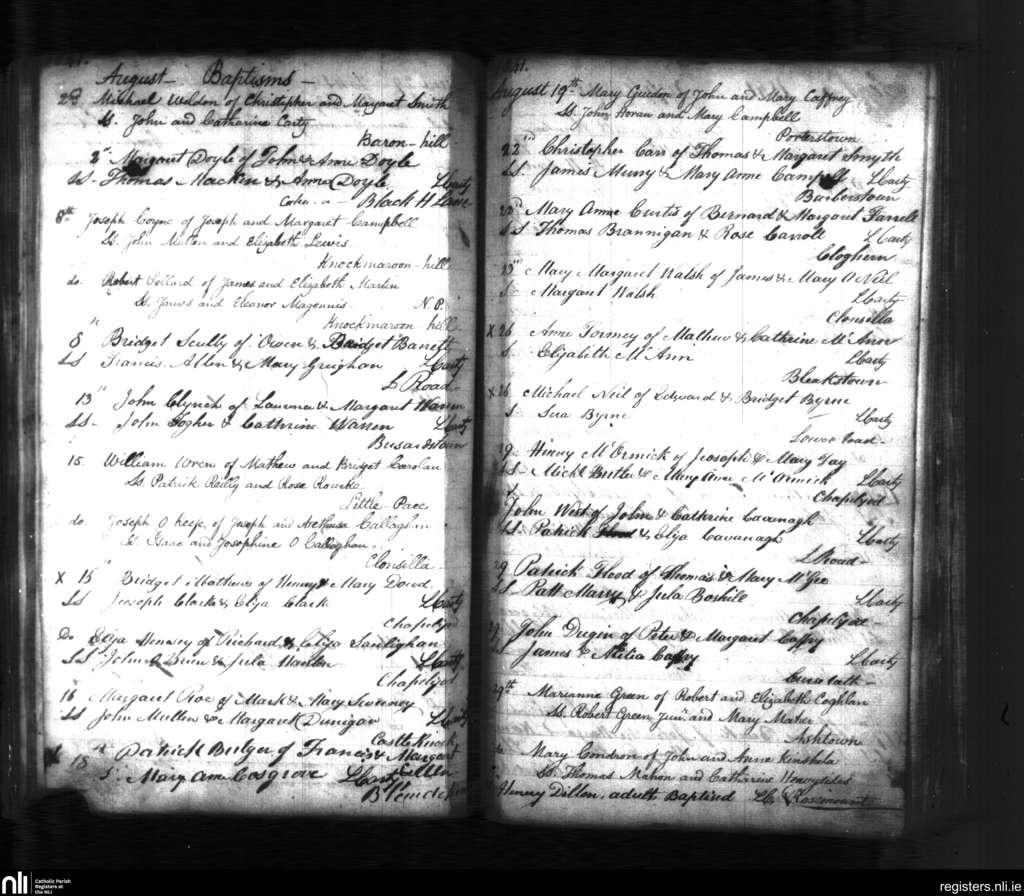 41.
August - Baptisms -
2nd Michael Weldon of Christopher and Margaret Smith
Ss. John and Catharine Carty
Baron-hill
2" Margaret Doyle of John & Anne Doyle
SS- Thomas Macken & Anne Doyle LCarty
Black H Lane
8th Joseph Coyne of Joseph and Margaret Campbell
Ss. John Mullen and Elizabeth Lewis
Knockmaroon-hill
do. Robert Pollard of James and Elizabeth Martin
Ss. James and Eleanor Magennis. N.P.
Knockmaroon hill
8" Bridget Scully of Owen & Bridget Barrett
SS Francis Allen & Mary Greighan LCarty
L Road
13" John Clynch of Laurence & Margaret Warren
SS- John Togher & Cathrine Warren LCarty
Busardstown
15. William Wren of Mathew and Bridget Carolan
Ss. Patrick Reilly and Rose Rourke
Little Pace
do. Joseph O Keefe, of Joseph and Callaghan
Ss Isaac and Josephine O Callaghan.
Clonsilla
X 15" Bridget Mathews of Henery & Mary Dowd
SS Joesoph Clarke & Eliza Clark LCarty
Chapelizod
Do Eliza Henesey of Richard & Eliza
SS. John O Brien & Jula LCarty
Chapelizod
16 Margaret Roe of Mark & Mary Sweeney
SS John Mullen & Margaret Dunigan LCarty
Castleknock
X 18" Patrick Bulger of Francis & Margaret Cullen
S. Mary Ann Cosgrove LCarty
41.
August 19th Mary Guidon of John and Mary Caffrey
Ss. John Horan and Mary Campbell
Porterstown
22nd Christopher Carr of Thomas & Margaret Smyth
SS. James Muny & Mary Anne Campbell LCarty
Barberstown
22" Mary Anne Curtis of Bernard & Margaret Farrell
SS Thomas Brannigan & Rose Carroll LCarty
Cloghern
Mary Margaret Walsh of James & Mary O Neil
S. Margaret Walsh LCarty
Clonsilla
X 26 Anne Tormey of Mathew & Cathrine McAnn
S. Elizabeth McAnn LCarty
Bleakstown
X 26 Michael Neil of Edward & Bridget Byrne
S. Byrne LCarty
Lower road-
29. Henry McOrmick of Joesoph & Mary Fay
SS. Mick Butler & Mary Anne McOrmick LCarty
Chapelizod
John West of John & Cathrine Cavanagh
SS. Patrick & Eliza Cavanagh LCarty
L Road-
29 Patrick Flood of Thomas & Mary McGee
SS. Patt & Jula Boshill LCarty
Chapelizod-
John Dugin of Peter & Margaret Caffry
James & Caffry LCarty
29th Marianne Green of Robert and Elizabeth Coghlan
Ss. Robert Green Junr. and Mary Maher
Ashtown
Mary Condron of John and Anne Kinshela
Ss. Thomas Mahon and Catharine Heavysides
Henery Dillon, adult Baptised LC, Rosemount
nli
Catholic Parish
Registers at
the NLI
registers.nli.ie